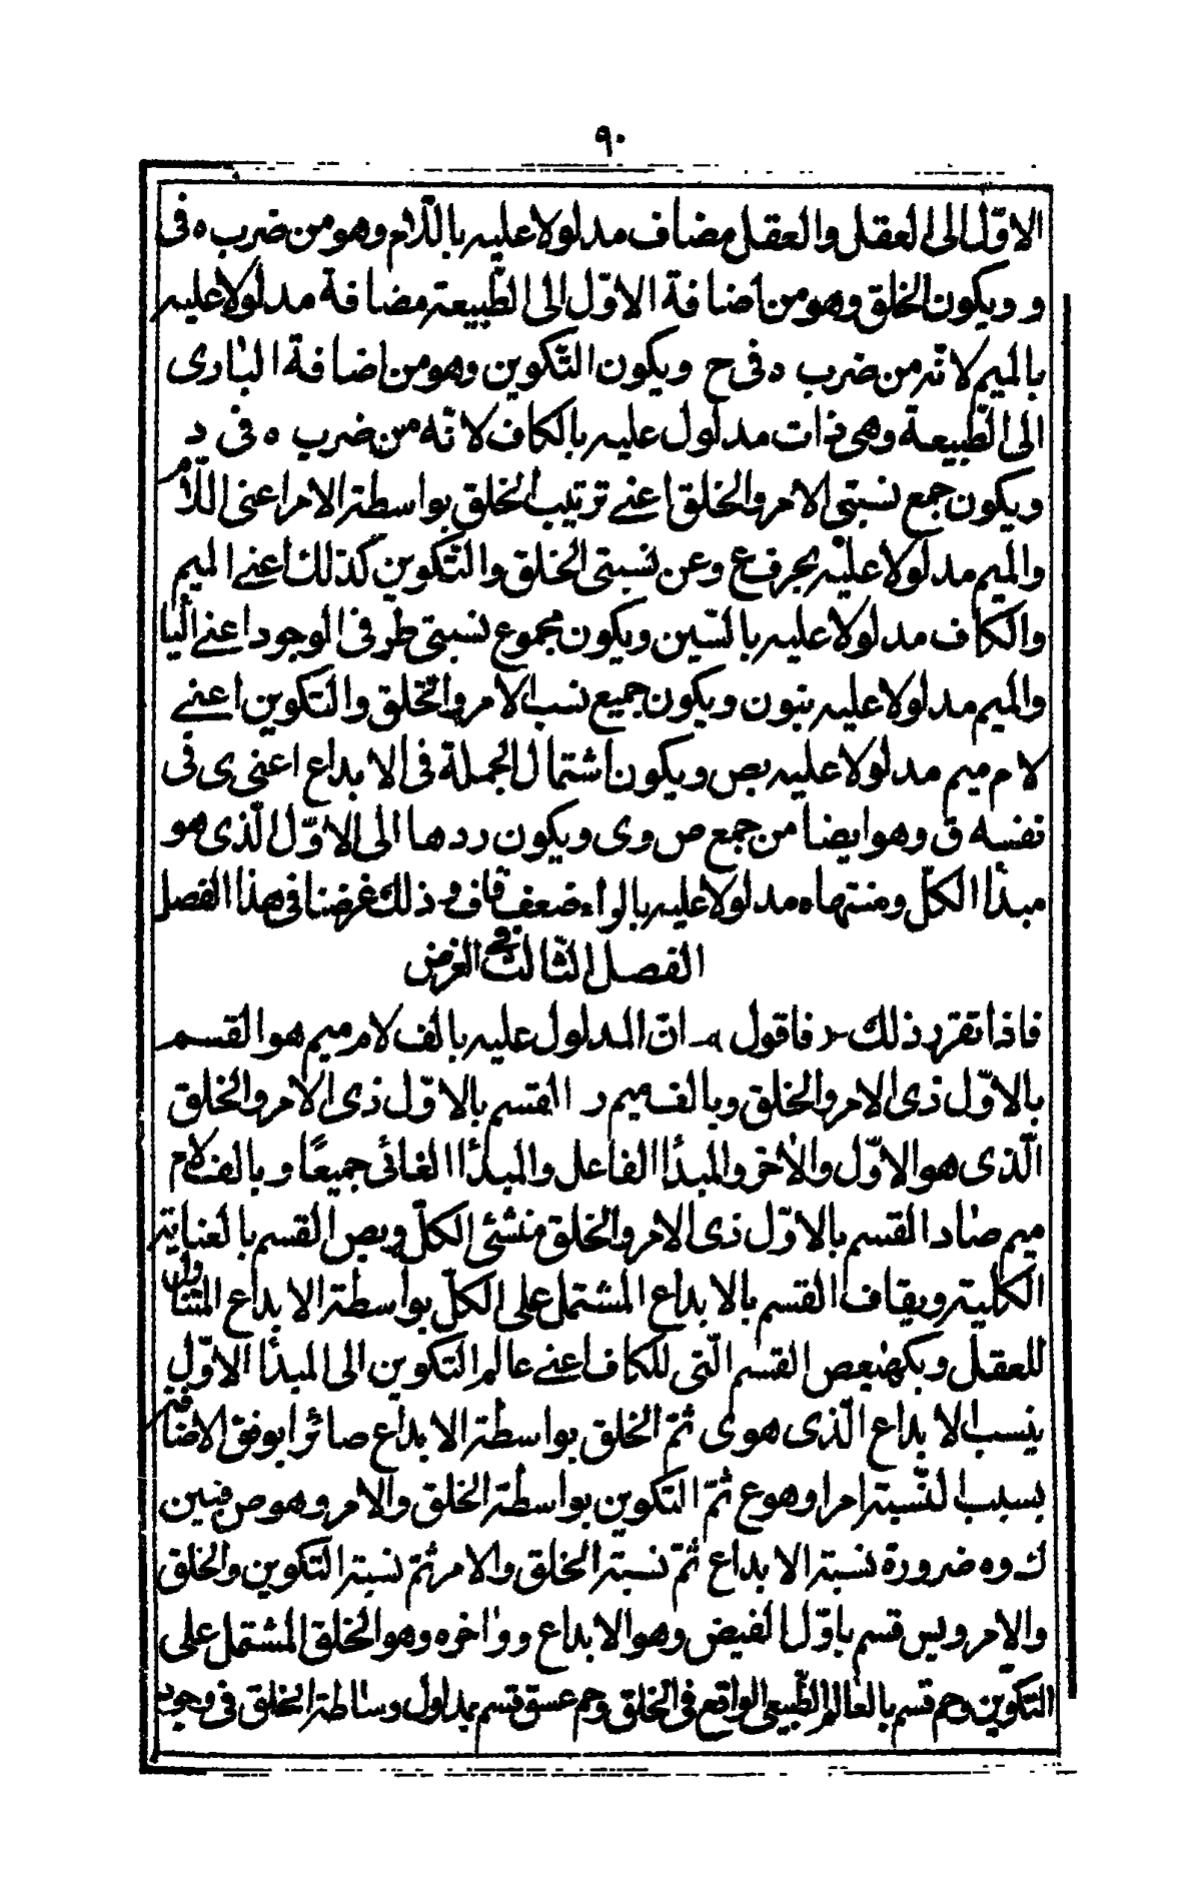 ٩٠
الاوّل الى العقل والعقل مضاف مدلولا عليه باللّام وهو من ضرب ه فى
و ويكون الخلق وهو من اضافة الاوّل الى الطّبيعة مضافة مدلولا عليه
بالميم لانّه من ضرب ه فى ح ويكون التّكوين وهو من اضافة البارى
الى الطّبيعة وهى ذات مدلول عليه بالكاف لانّه من ضرب ه فى د
ويكون جمع نسبتى الامر والخلق اعنے ترتيب الخلق بواسطة الامر اعنى اللّام
والميم مدلولا عليه بحرف ع وعن نسبتى الخلق والتّكوين كذلك اعنے الميم
والكاف مدلولا عليه بالسّين ويكون مجموع نسبتى طرفى الوجود اعنے اليا
والميم مدلولا عليه بنون ويكون جميع نسب الامر والخلق والتكوين اعنے
لام ميم مدلولا عليه بص ويكون اشتمال الجملة فى الابداع اعنى ى فى
نفسه ق وهو ايضا من جمع ص وى ويكون ردها الى الاوّل الّذى هو
مبدأ الكلّ ومنتهاه مدلولا عليه بالراء ضعف قاف وذلك غرضنا فى هذا الفصل
الفصل الثّالث فى الغرض
فاذا تقرر ذلك فاقول ان المدلول عليه بالف لام ميم هو القسم
بالاوّل ذى الامر والخلق وبالف ميم ر القسم بالاوّل ذى الامر والخلق
الّذى هو الاوّل والآخر والمبدأ الفاعل والمبدأ الغائى جميعًا وبالف لام
ميم صاد القسم بالاوّل ذى الامر والخلق منشئ الكلّ وبص القسم بالعناية
الكلية وبقاف القسم بالابداع المشتمل على الكلّ بواسطة الابداع المتناول
للعقل وبكهيعص القسم الّتى للكاف اعنے عالم التكوين الى المبدأ الاوّل
بنسب الابداع الّذى هو ى ثمّ الخلق بواسطة الابداع صائرا بوفق الاضافة
بسبب النّسبة امرا وهو ع ثمّ التكوين بواسطة الخلق والامر وهو ص فبين
ك وه ضرورة نسبة الابداع ثمّ نسبة الخلق والامر ثمّ نسبة التكوين والخلق
والامر ويس قسم باوّل الفيض وهو الابداع وواخره وهو الخلق المشتمل على
التكوين وحم قسم بالعالم الطّبيعى الواقع فى الخلق وحم عسق قسم بمدلول وساطة الخلق فى وجود